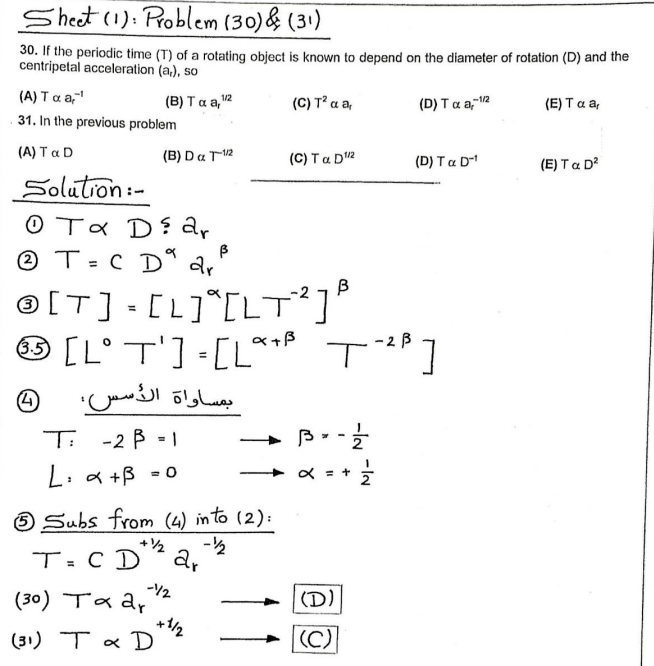 Sheet (1): Problem (30) & (31)
30. If the periodic time (T) of a rotating object is known to depend on the diameter of rotation (D) and the
centripetal acceleration (aᵣ), so
(A) T α aᵣ⁻¹ (B) T α aᵣ^1/2 (C) T² α aᵣ (D) T α aᵣ^-1/2 (E) T α aᵣ
31. In the previous problem
(A) T α D (B) D α T^-1/2 (C) T α D^1/2 (D) T α D⁻¹ (E) T α D²
Solution:-
① T α D ; aᵣ
② T = C D^α aᵣ^β
③ [T] = [L]^α [LT⁻²]^β
3.5 [L⁰ T¹] = [L^α+β T^-2β]
④ بمساواة الأسس:
T: -2β = 1 → β = -1/2
L: α + β = 0 → α = + 1/2
⑤ Subs from (4) into (2):
T = C D^+1/2 aᵣ^-1/2
(30) T α aᵣ^-1/2 → (D)
(31) T α D^+1/2 → (C)